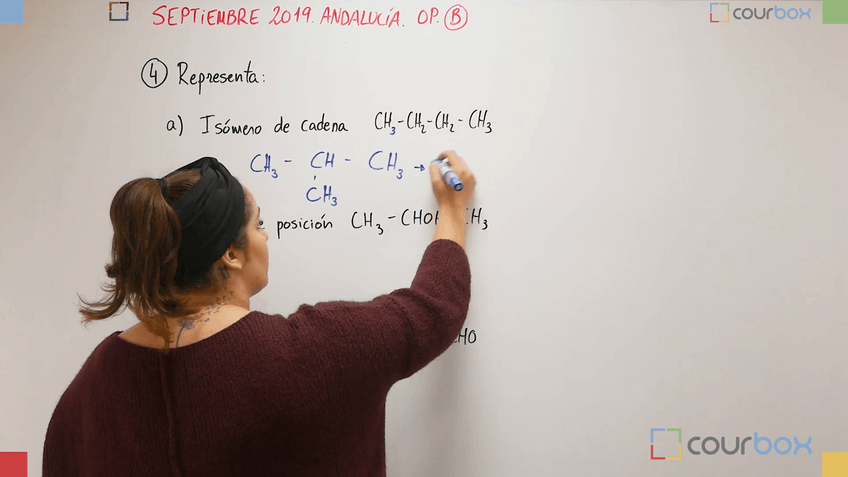 SEPTIEMBRE 2019. ANDALUCÍA. OP. B
courbox
4 Representa:
a) Isómero de cadena CH3-CH2-CH2-CH3
CH3 - CH - CH3 →
CH3
posición CH3 - CHOH CH3
CHO
courbox